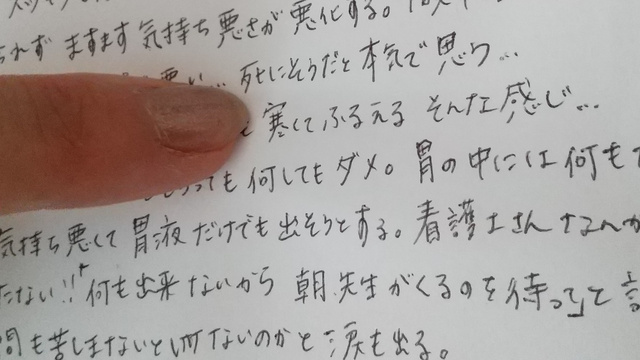 られず ますます 気持ち 悪さが 悪化する。
悪い… 死にそうだと 本気で 思う…
寒くて ふるえる そんな 感じ…
っても 何しても ダメ。 胃の 中には 何も
気持ち 悪くて 胃液 だけでも 出そうとする。 看護士さん なんか
たない!! 何も 出来 ないから 朝、先生が くるのを 待って」と
間も 苦しまないと いけないのかと 涙も 出る。